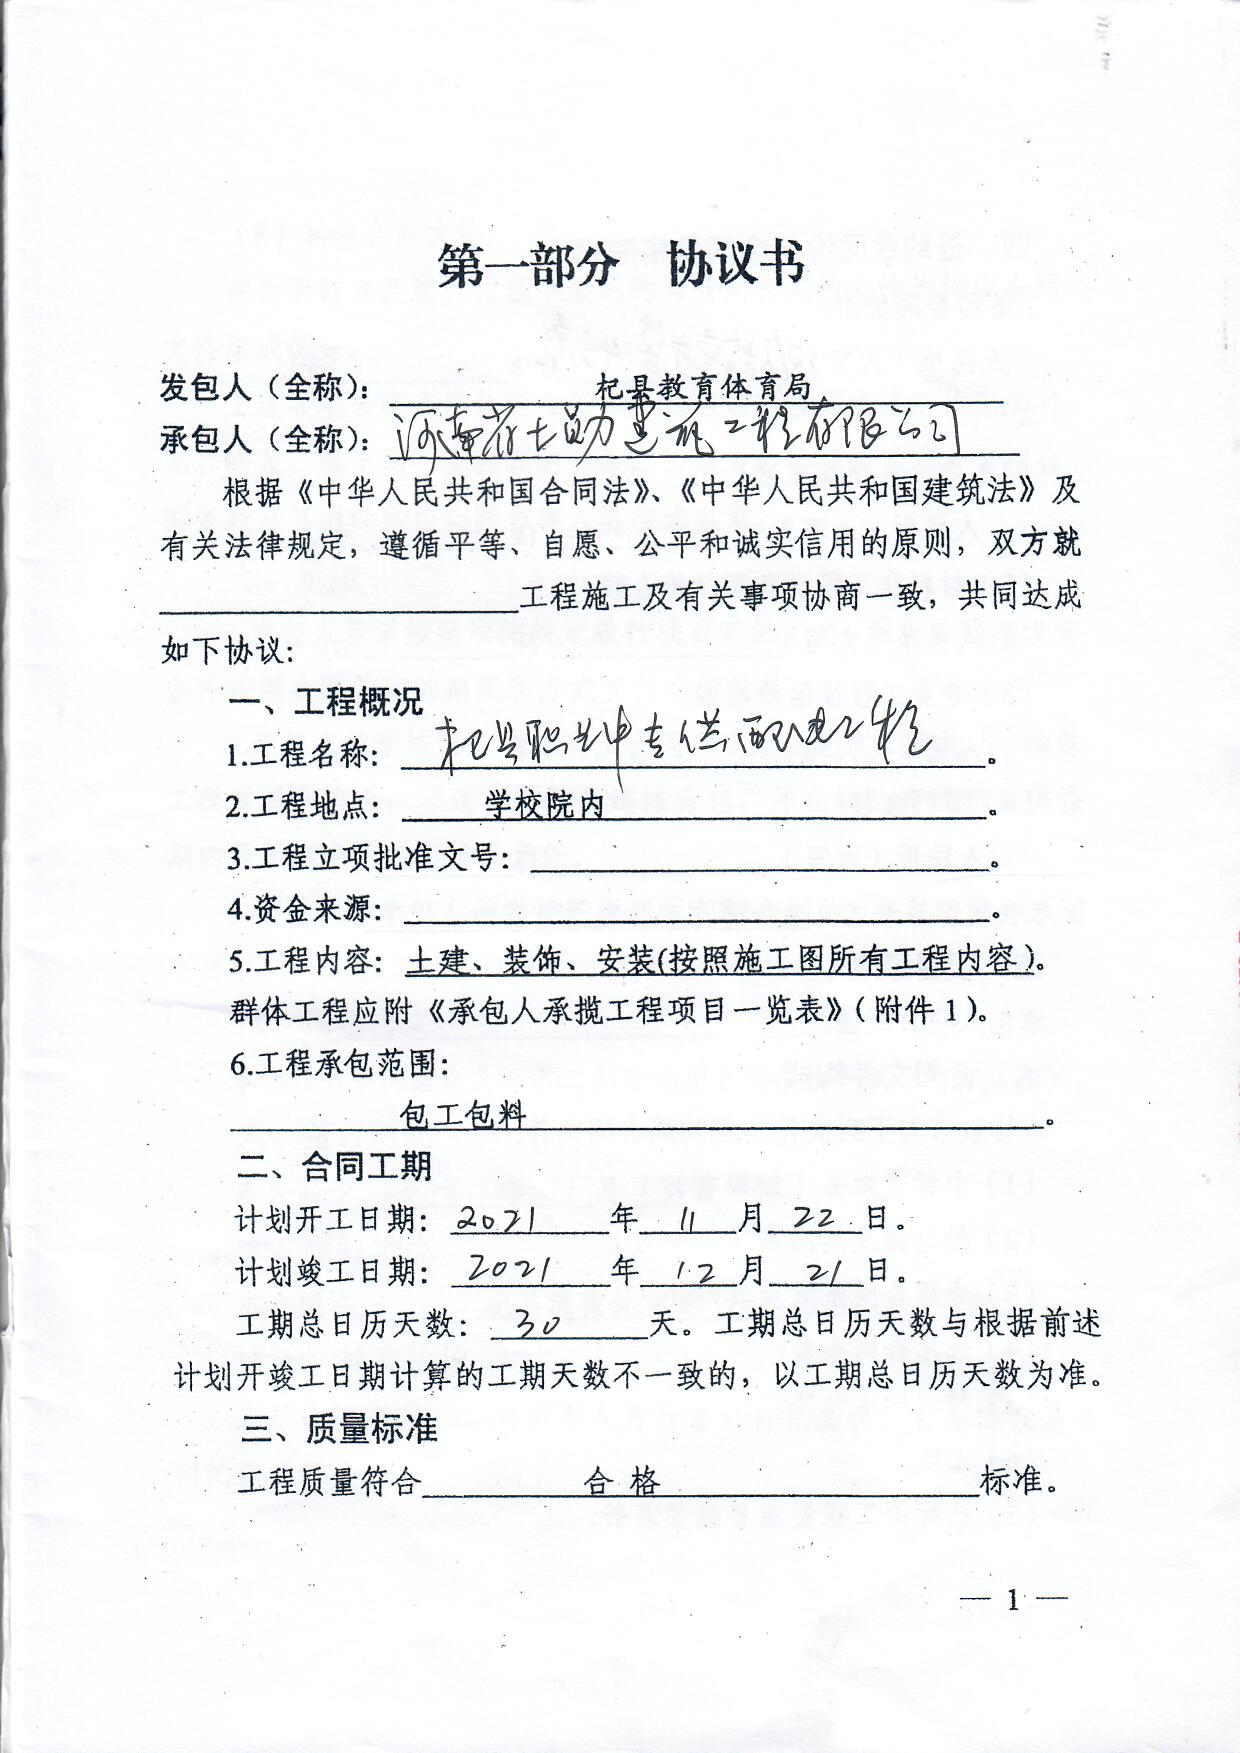 第一部分 协议书
发包人（全称）：杞县教育体育局
承包人（全称）：河南省七勋建筑工程有限公司
根据《中华人民共和国合同法》、《中华人民共和国建筑法》及
有关法律规定，遵循平等、自愿、公平和诚实信用的原则，双方就
工程施工及有关事项协商一致，共同达成
如下协议：
一、工程概况
1.工程名称：杞县职业中专供配电工程。
2.工程地点：学校院内。
3.工程立项批准文号：。
4.资金来源：。
5.工程内容：土建、装饰、安装(按照施工图所有工程内容)。
群体工程应附《承包人承揽工程项目一览表》（附件1）。
6.工程承包范围：
包工包料。
二、合同工期
计划开工日期：2021年11月22日。
计划竣工日期：2021年12月21日。
工期总日历天数：30天。工期总日历天数与根据前述
计划开竣工日期计算的工期天数不一致的，以工期总日历天数为准。
三、质量标准
工程质量符合 合格 标准。
— 1 —